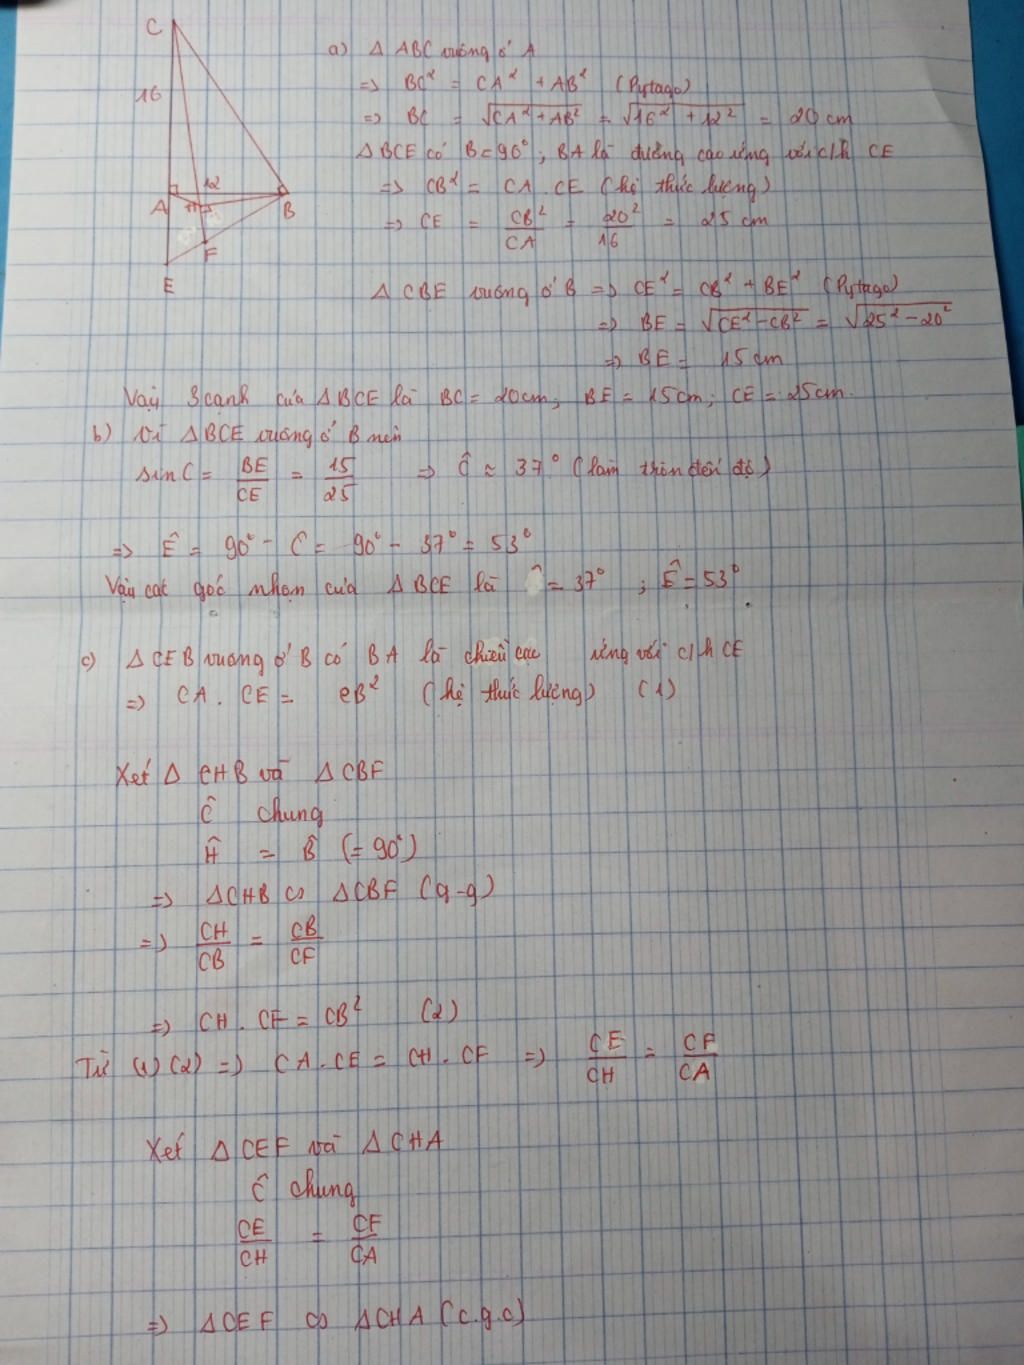 C
16
12
A
H
B
F
E
a) Δ ABC vuông ở A
=> BC² = CA² + AB² (Pytago)
=> BC = √(CA² + AB²) = √(16² + 12²) = 20 cm
ΔBCE có B = 90°, BA là đường cao ứng với c/h CE
=> CB² = CA . CE (hệ thức lượng)
=> CE = CB²/CA = 20²/16 = 25 cm
Δ CBE vuông ở B => CE² = CB² + BE² (Pytago)
=> BE = √(CE² - CB²) = √(25² - 20²)
=> BE = 15 cm
Vậy 3 cạnh của ΔBCE là BC = 20cm; BE = 15cm; CE = 25cm.
b) Vì ΔBCE vuông ở B nên
sin C = BE/CE = 15/25 => Ĉ ≈ 37° (làm tròn đến độ)
=> Ê = 90° - C = 90° - 37° = 53°
Vậy các góc nhọn của ΔBCE là = 37° ; Ê = 53°
c) ΔCEB vuông ở B có BA là chiều cao ứng với c/h CE
=> CA . CE = CB² (hệ thức lượng) (1)
Xét Δ CHB và ΔCBF
Ĉ chung
Ĥ = B̂ (= 90°)
=> ΔCHB ∽ ΔCBF (g-g)
=> CH/CB = CB/CF
=> CH . CF = CB² (2)
Từ (1) (2) => CA . CE = CH . CF => CE/CH = CF/CA
Xét ΔCEF và ΔCHA
Ĉ chung
CE/CH = CF/CA
=> ΔCEF ∽ ΔCHA (c.g.c)